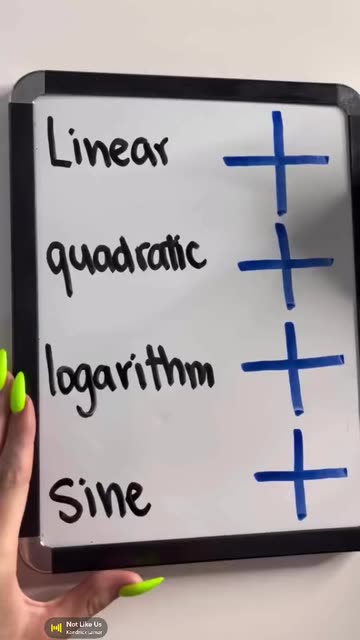 Linear
quadratic
logarithm
sine
Not Like Us
Kendrick Lamar